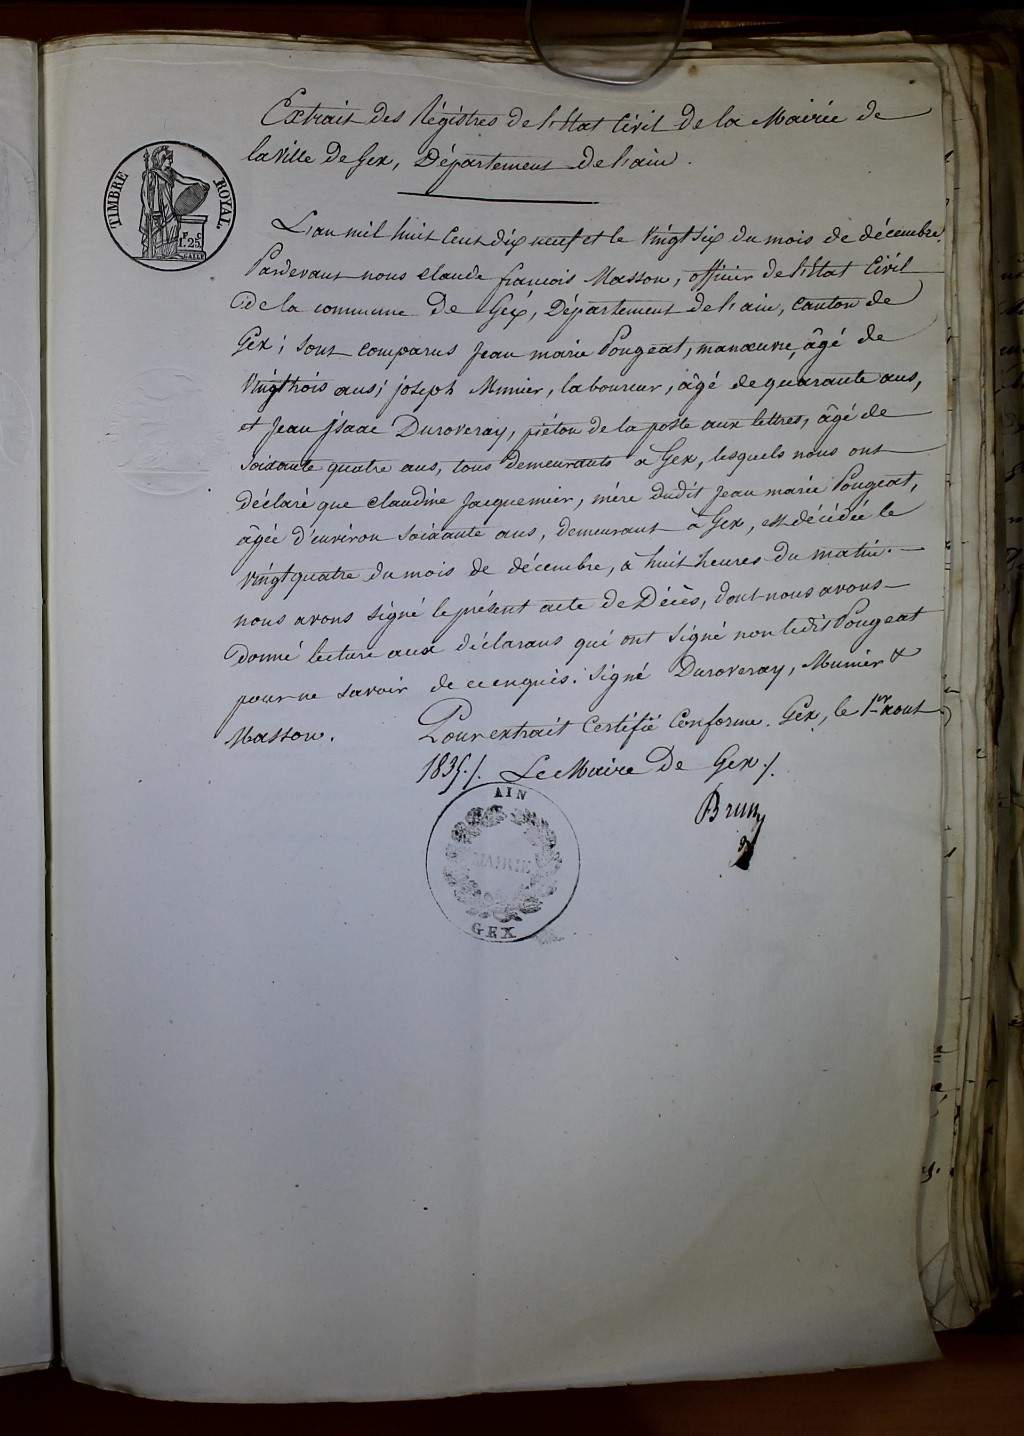 Extrait des Régistres de l'Etat Civil de la Mairie de
la Ville de Gex, Département de l'ain.
TIMBRE ROYAL
F. C.
1.25
L'an mil huit cent dix neuf et le vingt six du mois de décembre.
Pardevant nous Claude françois Masson, officier de l'Etat Civil
de la commune de Gex, Département de l'ain, canton de
Gex; sont comparus Jean marie Pougeat, manœuvre, âgé de
vingttrois ans; joseph Munier, laboureur, âgé de quarante ans,
et Jean jsaac Duroveray, piéton de la poste aux lettres, âgé de
soixante quatre ans, tous demeurants à Gex, lesquels nous ont
déclaré que Claudine Jacquemier, mère dudit Jean marie Pougeat,
âgée d'environ soixante ans, demeurant à Gex, est décédée le
vingt quatre du mois de décembre, à huit heures du matin. —
nous avons signé le présent acte de Décès, dont nous avons
donné lecture aux déclarans qui ont signé non ledit Pougeat
pour ne savoir de ce enquis. Signé Duroveray, Munier &
Masson. Pour extrait Certifié Conforme. Gex, le 1er aout
1835./. Le Maire de Gex./.
Brun
AIN
MAIRIE
GEX